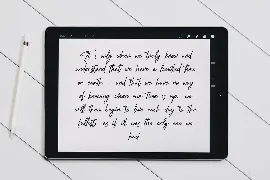 "It is only when we truly know and
understand that we have a limited time
on earth – and that we have no way
of knowing when our time is up, we
will then begin to live each day to the
fullest, as if it was the only one we
had."